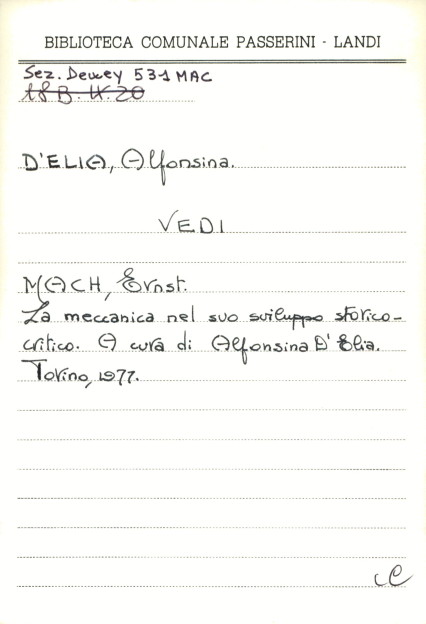 BIBLIOTECA COMUNALE PASSERINI - LANDI
Sez. Dewey 531 MAC
18 B. IX. 20
D'ELIA, Alfonsina.
VEDI
MACH, Ernst.
La meccanica nel suo sviluppo storico-
critico. A cura di Alfonsina D'Elia.
Torino, 1977.